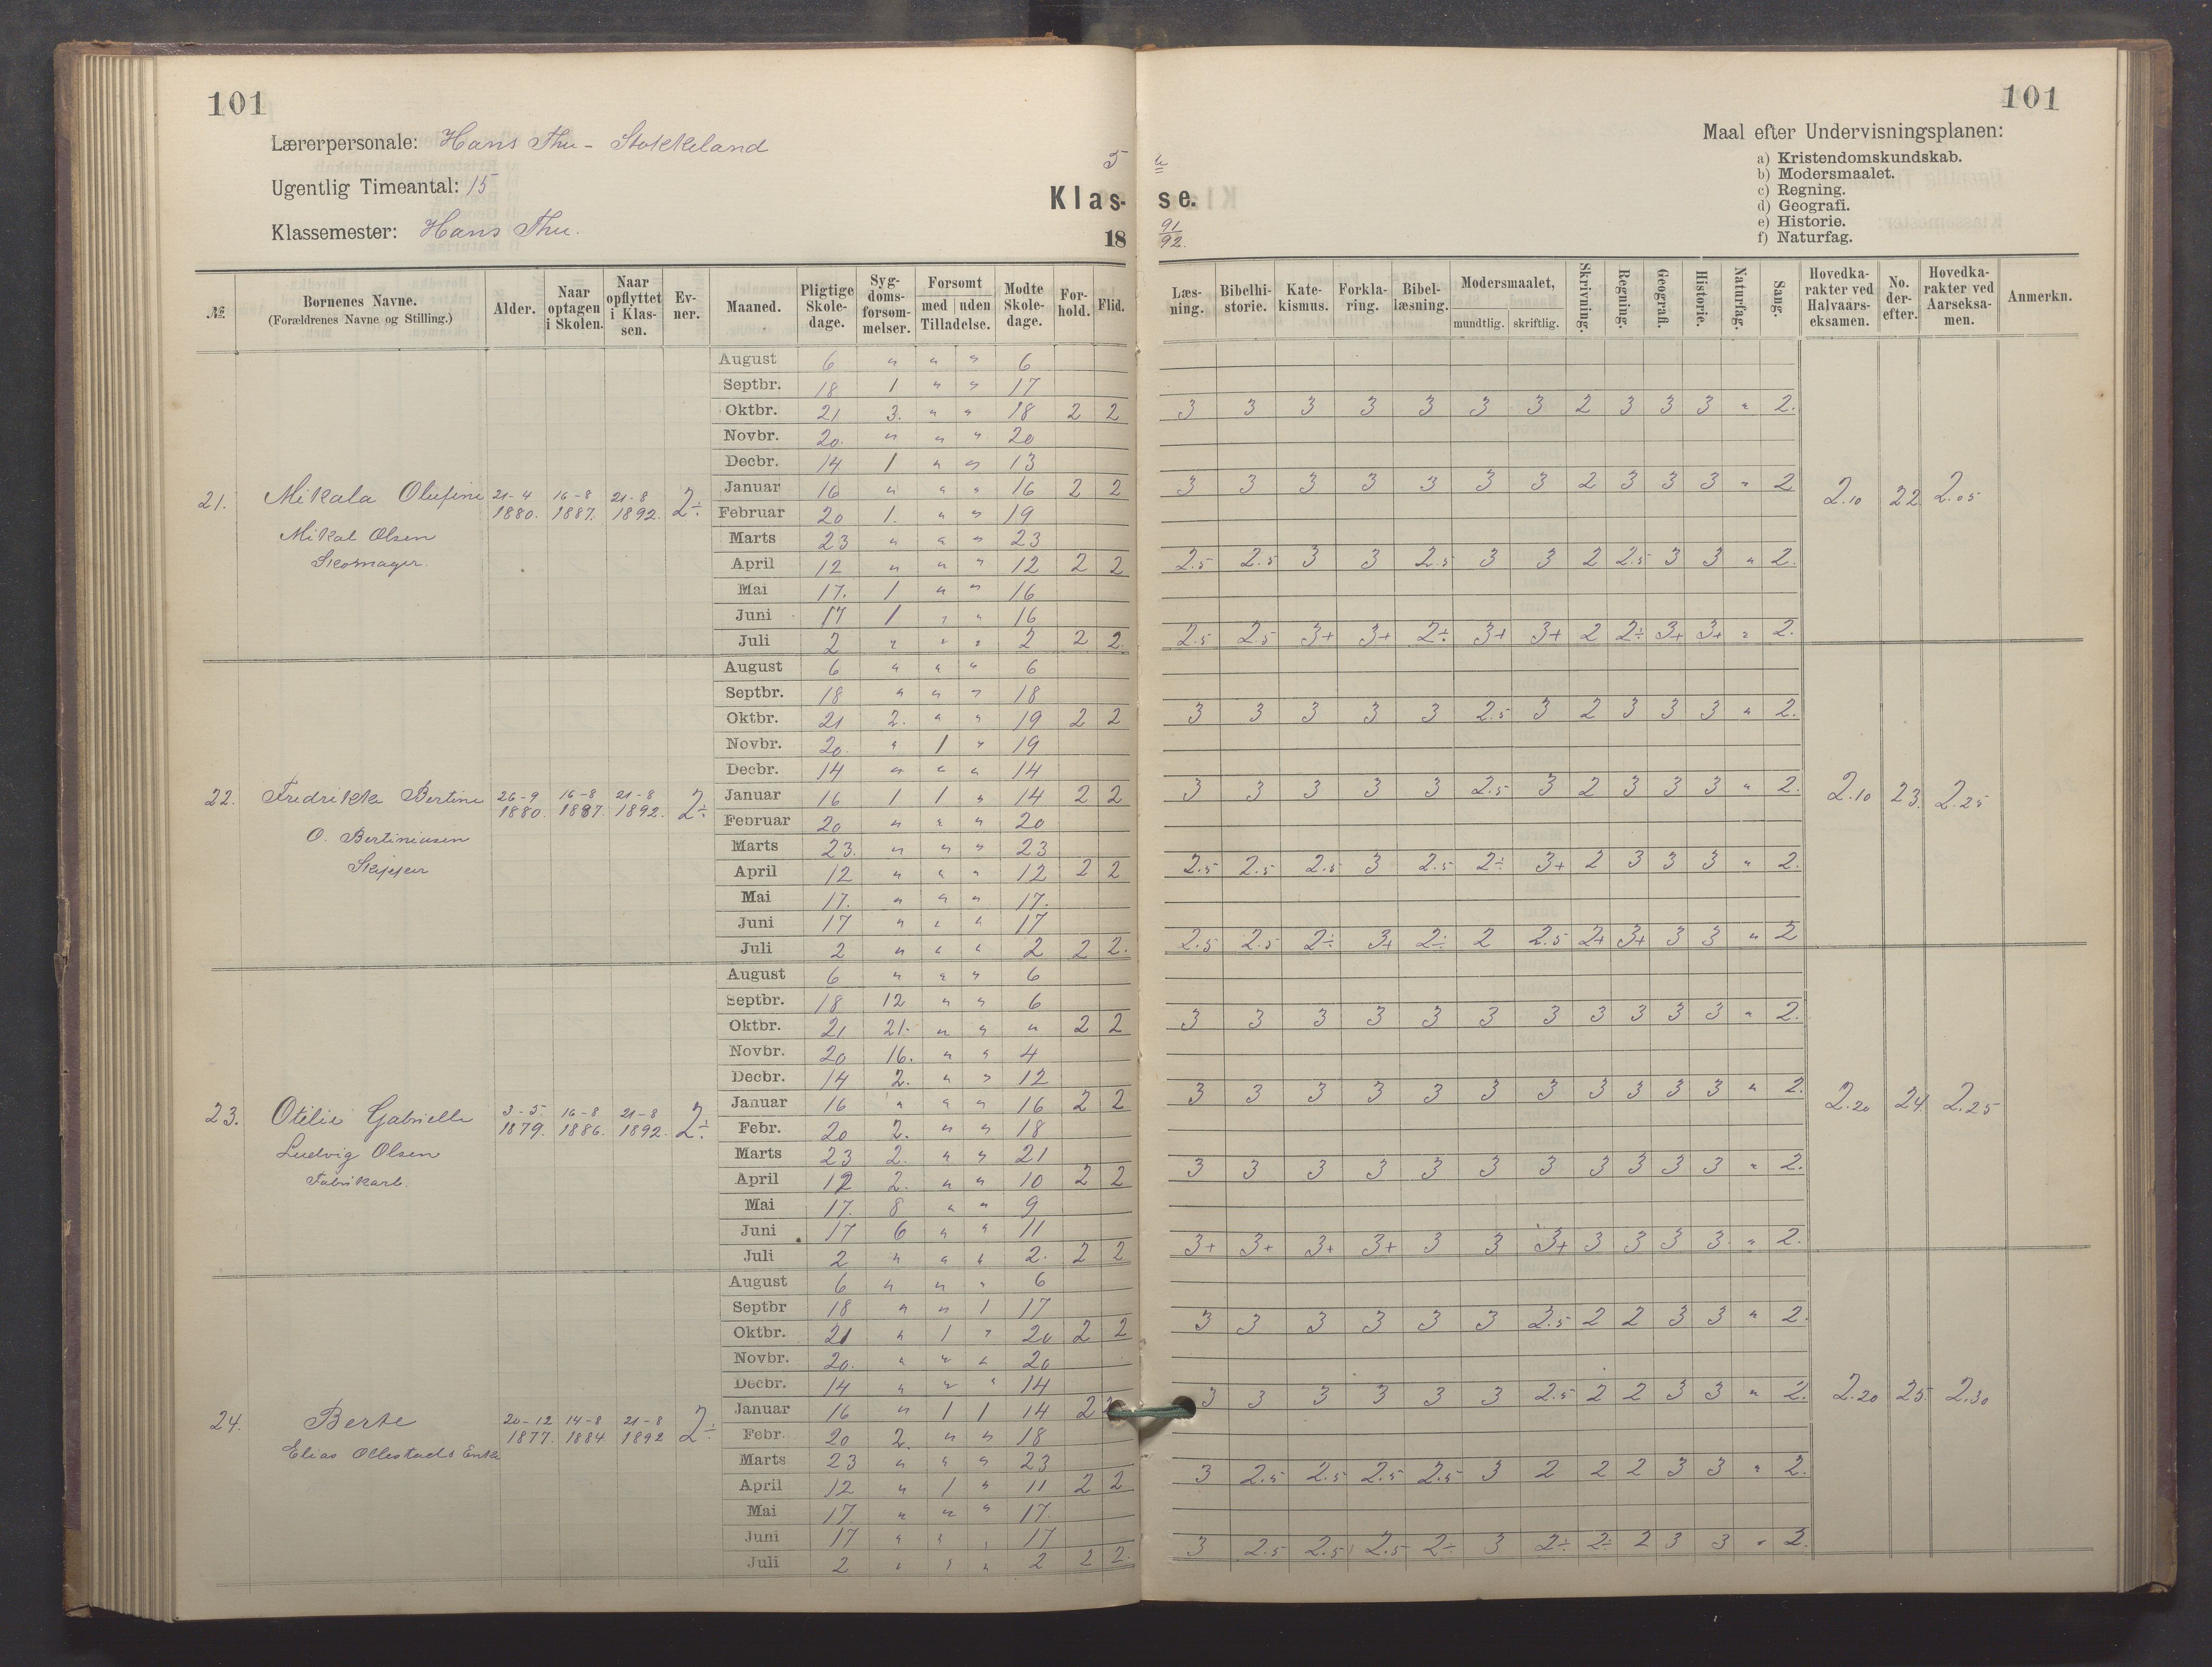 101
101
Lærerpersonale: Hans Thu - Stokkeland
Ugentlig Timeantal: 15
Klassemester: Hans Thu.
5 te
Klas- se.
18 91/92.
Maal efter Undervisningsplanen:
a) Kristendomskundskab.
b) Modersmaalet.
c) Regning.
d) Geografi.
e) Historie.
f) Naturfag.
№. Børnenes Navne. (Forældrenes Navne og Stilling.) Alder. Naar optagen i Skolen. Naar opflyttet i Klassen. Ev-ner. Maaned. Pligtige Skole-dage. Syg-doms-forsøm-melser. Forsømt med uden Tilladelse. Mødte Skole-dage. For-hold. Flid. Læs-ning. Bibelhi-storie. Kate-kismus. Forkla-ring. Bibel-læsning. Modersmaalet, mundtlig. skriftlig. Skrivning. Regning. Geografi. Historie. Naturfag. Sang. Hovedka-rakter ved Halvaars-eksamen. No. der-efter. Hovedka-rakter ved Aarseksa-men. Anmerkn.
21. Mikala Olufine 21-4 1880. 16-8 1887. 21-8 1892. 2÷ 2.10 22 2.05
Mikal Olsen
Skomager.
August 6 " " " 6
Septbr. 18 1 " " 17
Oktbr. 21 3. " " 18 2 2 3 3 3 3 3 3 3 2 3 3 3 " 2.
Novbr. 20. " " " 20
Decbr. 14 1 " " 13
Januar 16 " " " 16 2 2 3 3 3 3 3 3 3 2 3 3 3 " 2
Februar 20 1. " " 19
Marts 23 " " " 23
April 12 " " " 12 2 2 2.5 2.5 3 3 2.5 3 3 2 2.5 3 3 " 2.
Mai 17. 1 " " 16
Juni 17 1 " " 16
Juli 2 " " " 2 2 2. 2.5 2.5 3+ 3+ 2÷ 3+ 3+ 2 2÷ 3+ 3+ " 2.
22. Fredrikke Bertine 26-9 1880. 16-8 1887. 21-8 1892. 2÷ 2.10 23. 2.25
O. Bertiniusen
Skipper
August 6 " " " 6
Septbr. 18 " " " 18
Oktbr. 21 2. " " 19 2 2 3 3 3 3 3 2.5 3 2 3 3 3 " 2.
Novbr. 20. " 1 " 19
Decbr. 14 " " " 14
Januar 16 1 1 " 14 2 2 3 3 3 3 3 2.5 3 2 3 3 3 " 2.
Februar 20 " " " 20
Marts 23. " " " 23
April 12 " " " 12 2 2 2.5 2.5 2.5 3 2.5 2÷ 3+ 2 3 3 3 " 2.
Mai 17. " " " 17.
Juni 17 " " " 17
Juli 2 " " " 2 2 2. 2.5 2.5 2÷ 3+ 2÷ 2 2.5 2+ 3+ 3 3 " 2
23. Otilie Gabrielle 3-5 1879. 16-8 1886. 21-8 1892. 2÷ 2.20 24. 2.25
Ludvig Olsen
Fabrikarb.
August 6 " " " 6
Septbr. 18 12 " " 6
Oktbr. 21 21. " " " 2 2 3 3 3 3 3 3 3 3 3 3 3 " 2.
Novbr. 20 16. " " 4
Decbr. 14 2. " " 12
Januar 16 " " " 16 2 2 3 3 3 3 3 3 3 3 3 3 3 " 2.
Febr. 20 2. " " 18
Marts 23 2. " " 21
April 12 2. " " 10 2 2 3 3 3 3 3 3 3 3 3 3 3 " 2.
Mai 17. 8 " " 9
Juni 17 6 " " 11
Juli 2 " " " 2. 2 2 3+ 3+ 3+ 3+ 3 3 3+ 3 3 3 3 " 2.
24. Berte 20-12 1877. 14-8 1884 21-8 1892 2÷ 2.20 25. 2.30
Elias Ollestads Enke
August 6 " " " 6
Septbr 18 " " 1 17
Oktbr. 21 " 1 " 20 2 2 3 3 3 3 3 3 2.5 2 2 3 3 " 2.
Novbr. 20. " " " 20
Decbr. 14 " " " 14
Januar 16 " 1 1 14 2 2 3 3 3 3 3 3 2.5 2 2 3 3 " 2.
Febr. 20 2. " " 18
Marts 23 " " " 23
April 12 " 1 " 11 2 2 3 2.5 2.5 2.5 2.5 3 2 2 2 3 3 " 2.
Mai 17. " " " 17.
Juni 17 " " " 17
Juli 2 " " " 2 2 2. 3 2.5 2.5 2.5 2÷ 3 2÷ 2÷ 2 3 3 " 2.